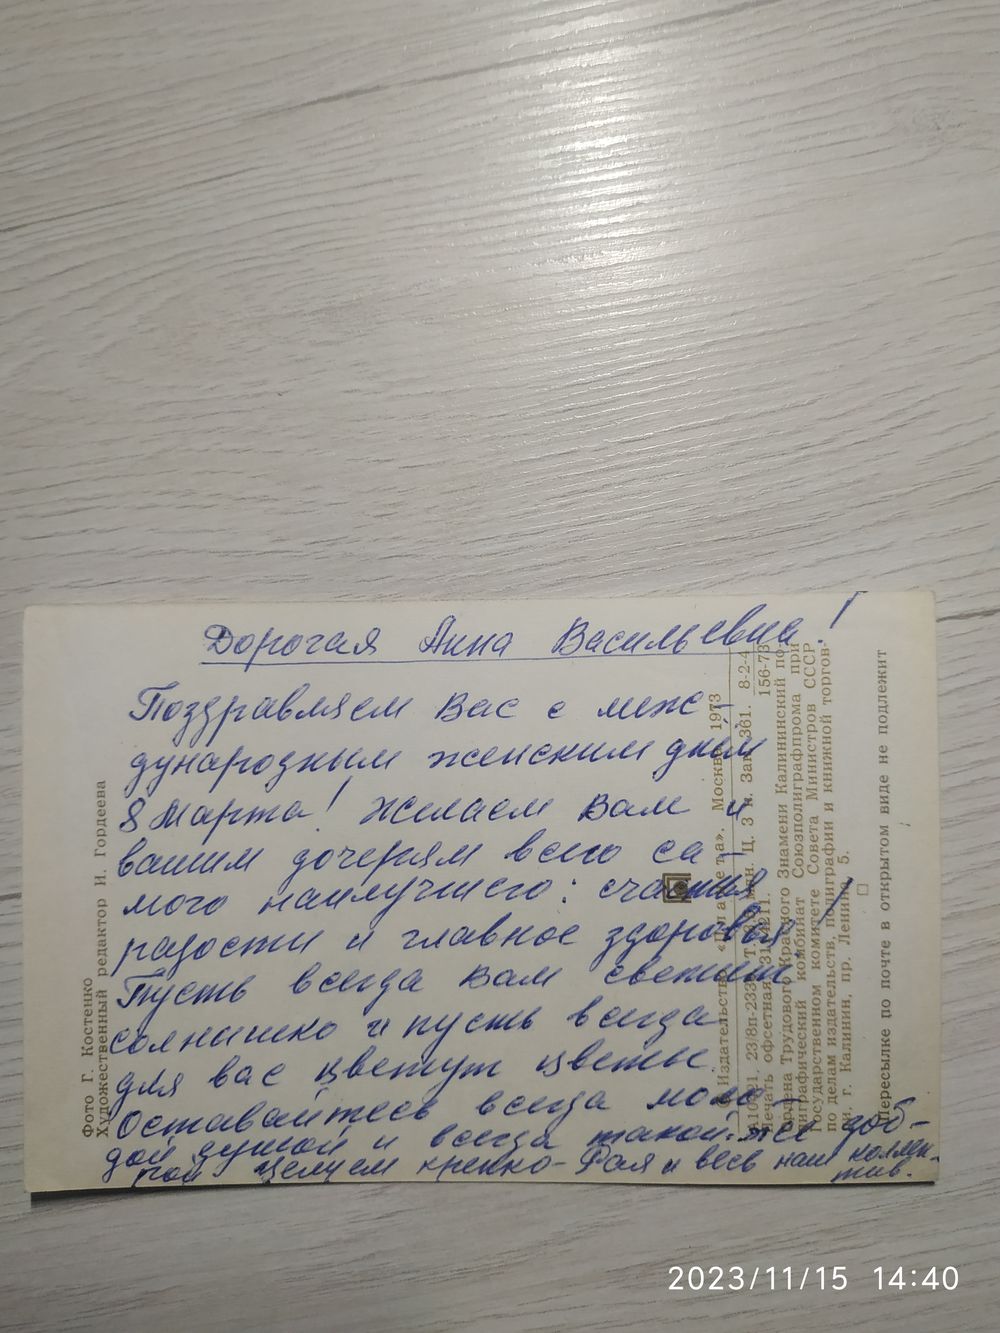 Дорогая Анна Васильевна!
Поздравляем Вас с меж-
дународным женским днём
8 Марта! Желаем Вам и
вашим дочерям всего са-
мого наилучшего: счастья,
радости и главное здоровья.
Пусть всегда Вам светит
солнышко и пусть всегда
для вас цветут цветы.
Оставайтесь всегда моло-
дой душой и всегда такой-же доб-
рой Целуем крепко - Рая и весь наш коллек-
тив.
Фото Г. Костенко
Художественный редактор И. Гордеева
Издательство «Планета». Москва 1973
8-2-4
156-73
Печать офсетная
Ордена Трудового Красного Знамени Калининский по-
лиграфический комбинат Союзполиграфпрома при
Государственном комитете Совета Министров СССР
по делам издательств, полиграфии и книжной торгов-
ли. г. Калинин, пр. Ленина, 5.
Пересылке по почте в открытом виде не подлежит
2023/11/15 14:40